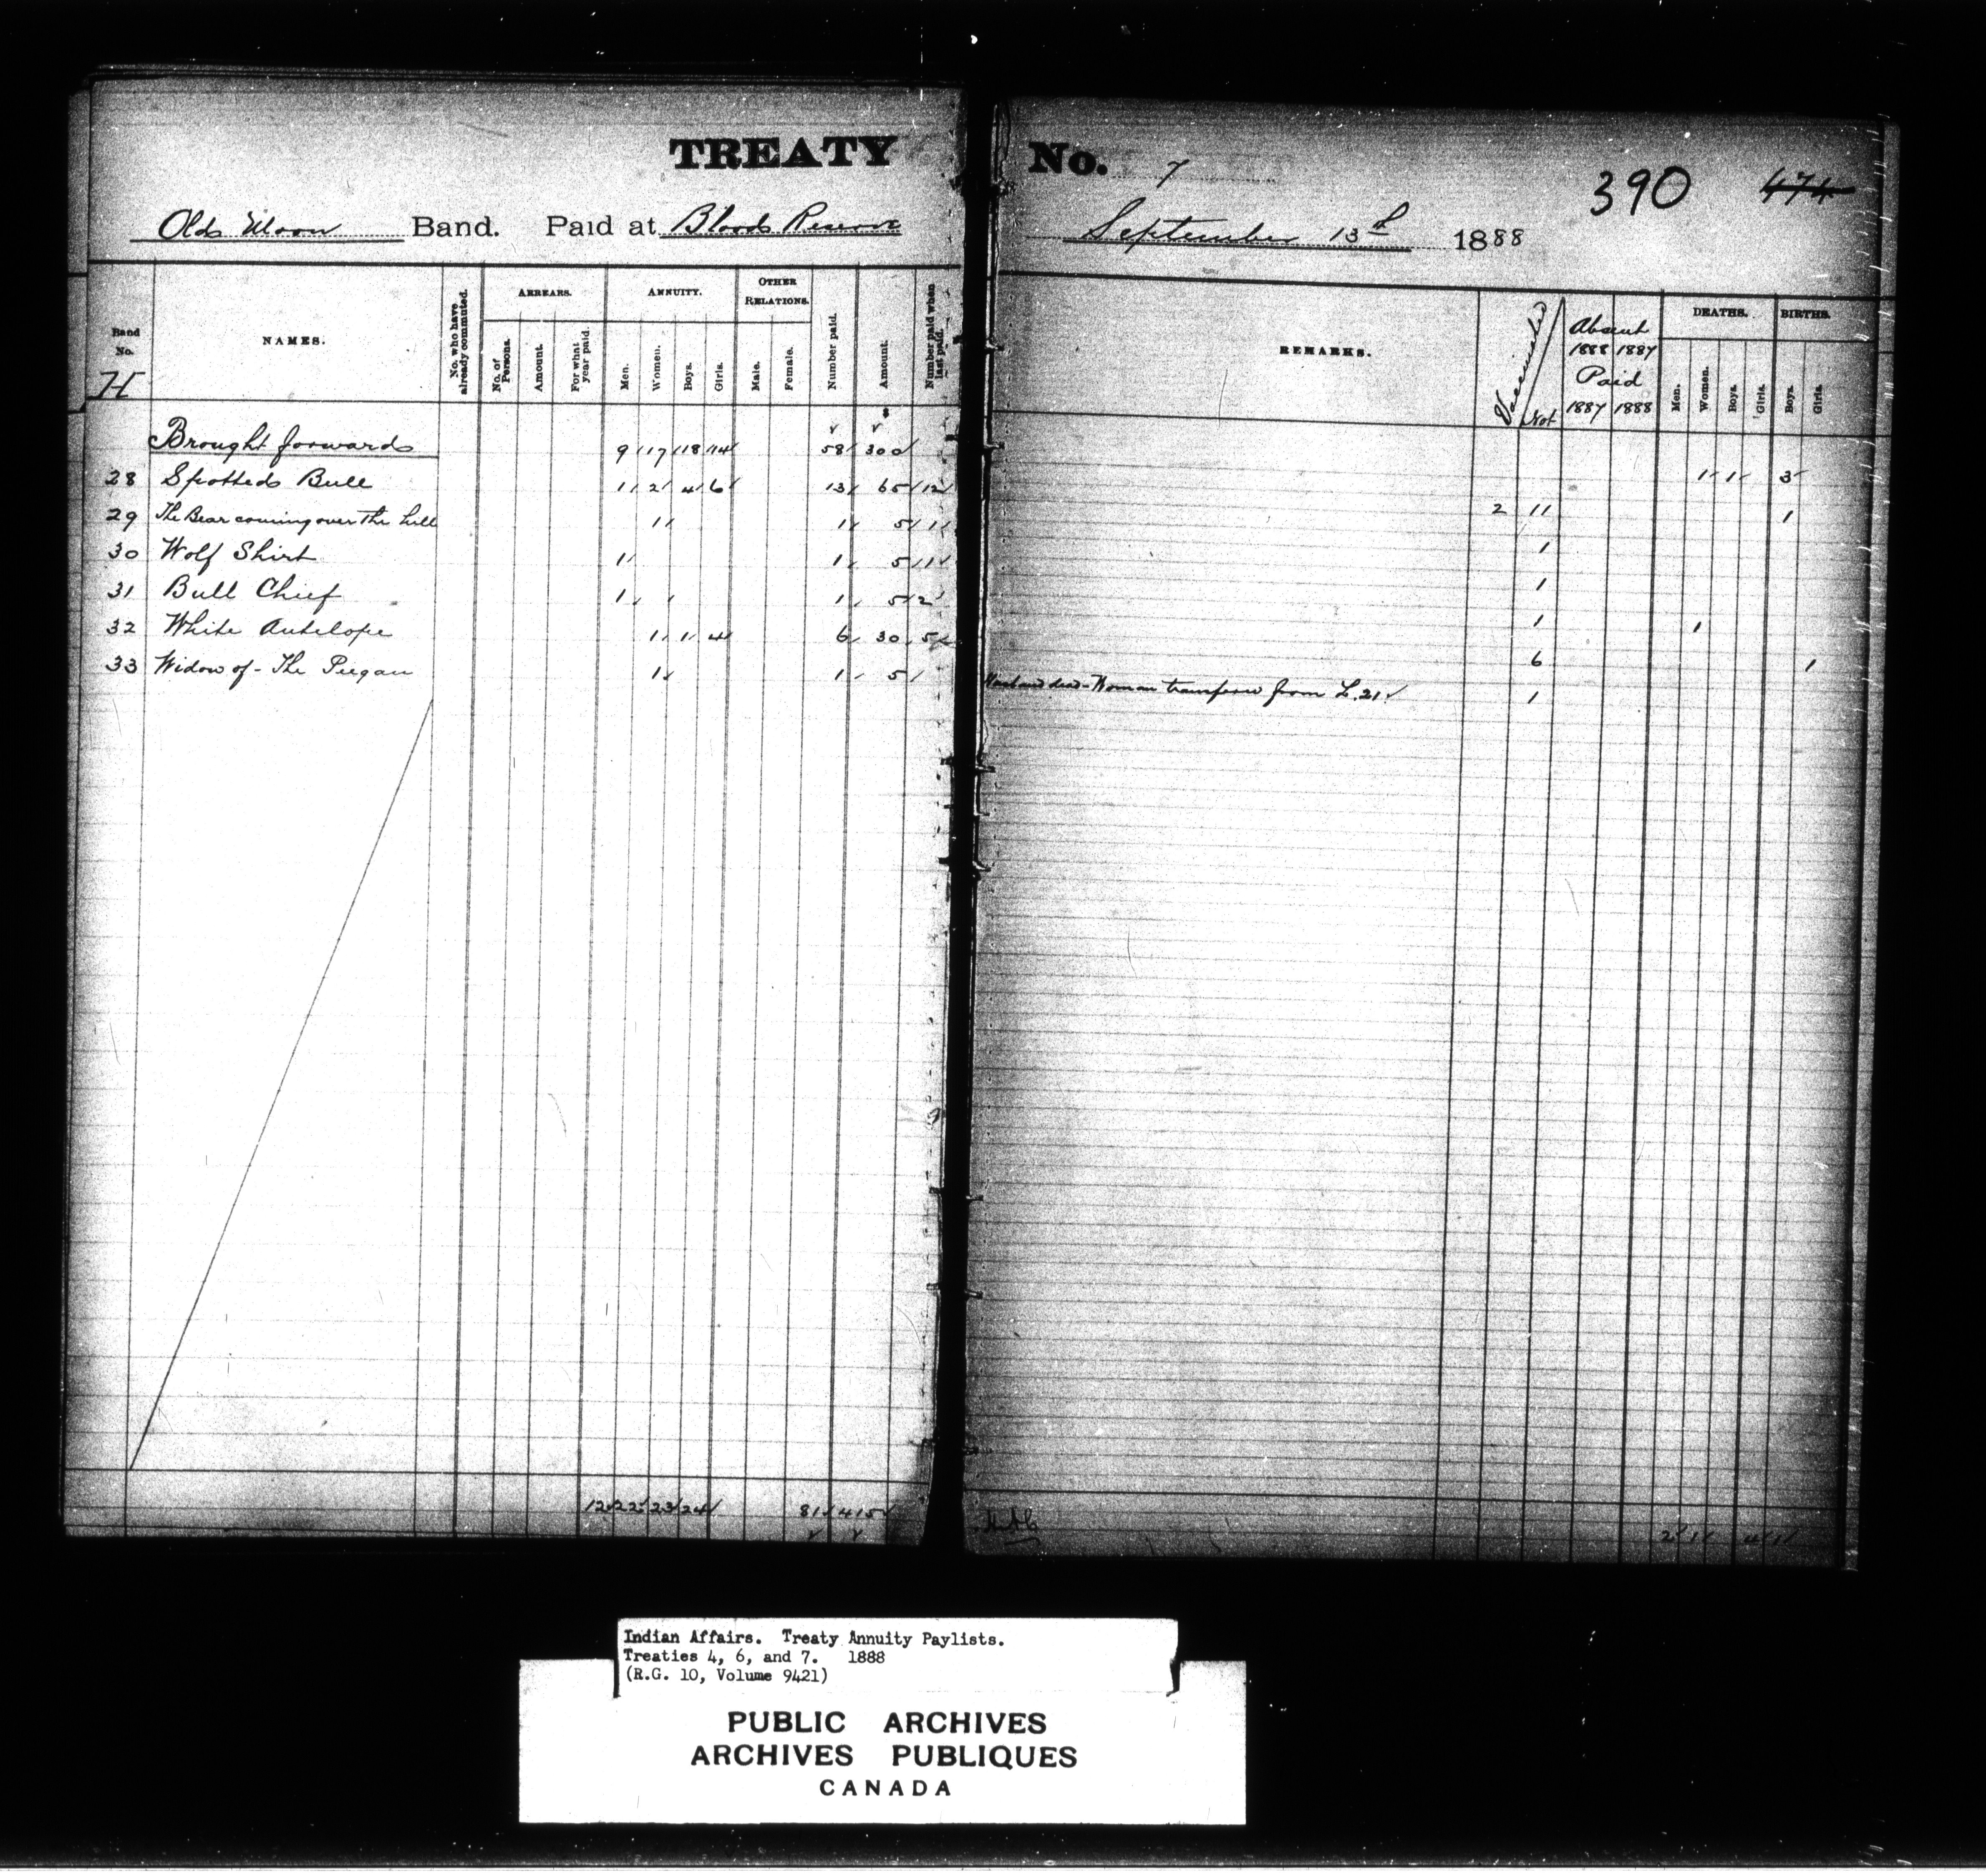 TREATY No. 7
390 474
Old Moon Band. Paid at Blood Reserve September 13th 1888
Band No.
H
NAMES.
No. who have already commuted.
ARREARS.
No. of Persons.
Amount.
For what year paid.
ANNUITY.
Men.
Women.
Boys.
Girls.
OTHER RELATIONS.
Male.
Female.
Number paid.
Amount.
Number paid when last paid.
REMARKS.
Vaccinated
Not
Absent
1888 1887
Paid
1887 1888
DEATHS.
Men.
Women.
Boys.
Girls.
BIRTHS.
Boys.
Girls.
$
Brought forward 9 17 18 14 58 300 1 1 3
28 Spotted Bull 1 2 4 6 13 65 12 2 11 1
29 The Bear coming over the hill 1 1 5 1 1
30 Wolf Shirt 1 1 5 1 1
31 Bull Chief 1 1 5 2 1 1
32 White Antelope 1 1 4 6 30 5 6 1
33 Widow of - The Peegan 1 1 5 Husband dead - Woman transferred from L. 21 1
12 22 23 24 81 415 2 1 4 1
Indian Affairs. Treaty Annuity Paylists.
Treaties 4, 6, and 7. 1888
(R.G. 10, Volume 9421)
PUBLIC ARCHIVES
ARCHIVES PUBLIQUES
CANADA